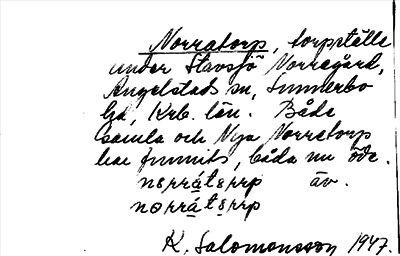 Norratorp, torpställe
under Stavsjö Norregård,
Angelstads sn, Sunnerbo
hd, Krb. län. Både
Gamla och Nya Norratorp
har funnits, båda nu öde.
nɵrrátɵrp äv.
nɵrrátɵrp
K. Salomonsson 1947.